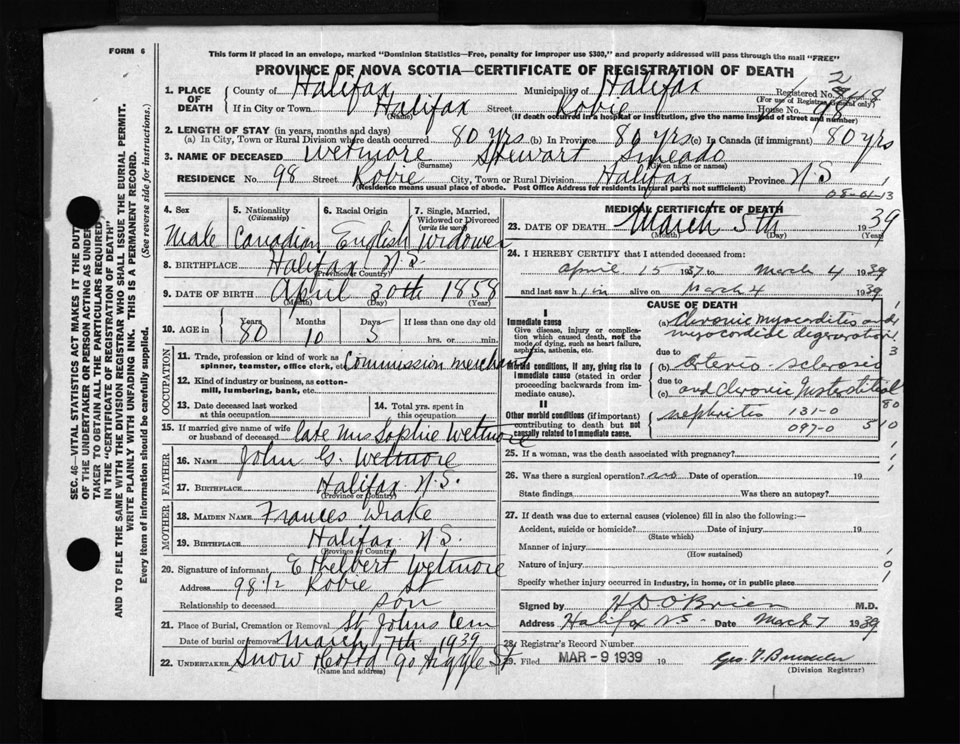 FORM 6
This form if placed in an envelope, marked "Dominion Statistics—Free, penalty for improper use $300," and properly addressed will pass through the mail "FREE"
PROVINCE OF NOVA SCOTIA—CERTIFICATE OF REGISTRATION OF DEATH
1. PLACE OF DEATH
County of Halifax Municipality of Halifax Registered No. 8
(For use of Registrar General only)
If in City or Town Halifax Street Robie House No. 98
(Name) (If death occurred in a hospital or institution, give the name instead of street and number)
2. LENGTH OF STAY (in years, months and days)
(a) In City, Town or Rural Division where death occurred 80 yrs (b) in Province 80 yrs (c) In Canada (if immigrant) 80 yrs
3. NAME OF DECEASED Wetmore Stewart
(Surname) (Given name or names)
RESIDENCE No. 98 Street Robie City, Town or Rural Division Halifax Province N S
(Residence means usual place of abode. Post Office Address for residents in rural parts not sufficient)
SEC. 46—VITAL STATISTICS ACT MAKES IT THE DUTY
OF THE UNDERTAKER OR PERSON ACTING AS UNDER-
TAKER TO OBTAIN ALL THE PARTICULARS REQUIRED
IN THE "CERTIFICATE OF REGISTRATION OF DEATH"
AND TO FILE THE SAME WITH THE DIVISION REGISTRAR WHO SHALL ISSUE THE BURIAL PERMIT.
WRITE PLAINLY WITH UNFADING INK. THIS IS A PERMANENT RECORD.
Every item of information should be carefully supplied. (See reverse side for instructions.)
4. Sex Male
5. Nationality (Citizenship) Canadian
6. Racial Origin English
7. Single, Married, Widowed or Divorced (write the word) Widower
8. BIRTHPLACE Halifax N.S.
(Province or Country)
9. DATE OF BIRTH April 30th 1858
(Month) (Day) (Year)
10. AGE in Years Months Days If less than one day old
80 10 5 hrs. or min.
OCCUPATION
11. Trade, profession or kind of work as spinner, teamster, office clerk, etc. Commission merchant
12. Kind of industry or business, as cotton-mill, lumbering, bank, etc.
13. Date deceased last worked at this occupation
14. Total yrs. spent in this occupation
15. If married give name of wife or husband of deceased late Mrs Sophie Wetmore
FATHER
16. NAME John G. Wetmore
17. BIRTHPLACE Halifax N.S.
(Province or Country)
MOTHER
18. MAIDEN NAME Frances Drake
19. BIRTHPLACE Halifax N S.
(Province or Country)
20. Signature of informant Ethelbert Wetmore
Address 98 1/2 Robie St
Relationship to deceased son
21. Place of Burial, Cremation or Removal St Johns Cem
Date of burial or removal March 7th 1939
22. UNDERTAKER Snow 90 Argyle St
(Name and address)
08-01-13
MEDICAL CERTIFICATE OF DEATH
23. DATE OF DEATH March 5th 1939
(Month) (Day) (Year)
24. I HEREBY CERTIFY that I attended deceased from:
April 15 1937 to March 4 1939
and last saw him alive on March 4 1939
CAUSE OF DEATH
I
Immediate cause
Give disease, injury or complication which caused death, not the mode of dying, such as heart failure, asphyxia, asthenia, etc.
(a) Chronic myocarditis and
myocardial degeneration
due to
Morbid conditions, if any, giving rise to immediate cause (stated in order proceeding backwards from immediate cause).
(b) Arterio-sclerosis
due to
(c) and Chronic Interstitial
II
Other morbid conditions (if important) contributing to death but not causally related to immediate cause.
nephritis 131-0
097-0
25. If a woman, was the death associated with pregnancy?
26. Was there a surgical operation? no Date of operation 19
State findings Was there an autopsy?
27. If death was due to external causes (violence) fill in also the following:—
Accident, suicide or homicide? Date of injury 19
(State which)
Manner of injury
(How sustained)
Nature of injury
Specify whether injury occurred in industry, in home, or in public place
Signed by H D O'Brien M.D.
Address Halifax NS. Date March 7 1939
28. Registrar's Record Number
29. Filed MAR - 9 1939 19
(Division Registrar)